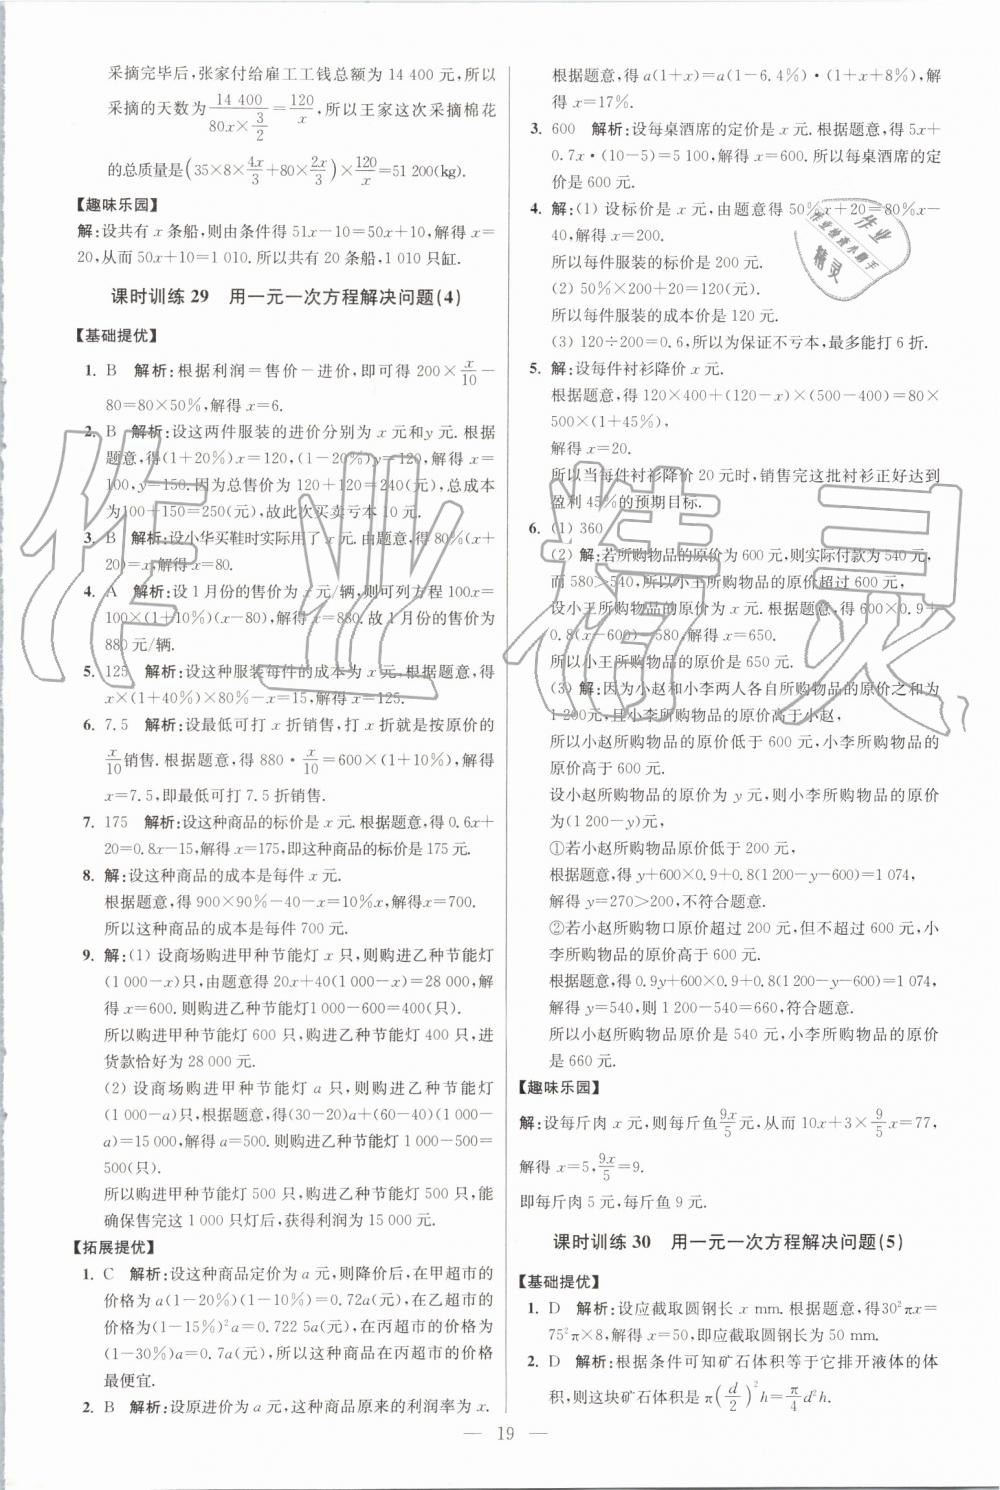 采摘完毕后,张家付给雇工工钱总额为 14 400 元,所以
采摘的天数为 14 400/(80x×3/2)=120/x,所以王家这次采摘棉花
的总质量是(35×8×4x/3+80×2x/3)×120/x=51 200(kg).
【趣味乐园】
解:设共有 x 条船,则由条件得 51x-10=50x+10,解得 x=
20,从而 50x+10=1 010. 所以共有 20 条船,1 010 只缸.
课时训练 29 用一元一次方程解决问题(4)
【基础提优】
1. B 解析:根据利润=售价-进价,即可得 200×x/10-
80=80×50%,解得 x=6.
2. B 解析:设这两件服装的进价分别为 x 元和y 元. 根据
题意,得(1+20%)x=120,(1-20%)y=120,解得 x=
100,y=150. 因为总售价为 120+120=240(元),总成本
为100+150=250(元),故此次买卖亏本 10 元.
3. B 解析:设小华买鞋时实际用了 x 元. 由题意,得 80%(x+
20)=x,解得 x=80.
4. A 解析:设 1 月份的售价为 x 元/辆,则可列方程 100x=
100×(1+10%)(x-80),解得 x=880. 故 1 月份的售价为
880 元/辆.
5. 125 解析:设这种服装每件的成本为 x 元. 根据题意,得
x×(1+40%)×80%-x=15,解得 x=125.
6. 7.5 解析:设最低可打 x 折销售,打 x 折就是按原价的
x/10销售. 根据题意,得 880·x/10=600×(1+10%),解得
x=7.5,即最低可打 7.5 折销售.
7. 175 解析:设这种商品的标价是 x 元. 根据题意,得 0.6x+
20=0.8x-15,解得 x=175,即这种商品的标价是 175 元.
8. 解:设这种商品的成本是每件 x 元.
根据题意,得 900×90%-40-x=10%x,解得x=700.
所以这种商品的成本是每件 700 元.
9. 解:(1) 设商场购进甲种节能灯 x 只,则购进乙种节能灯
(1 000-x)只,由题意得 20x+40(1 000-x)=28 000,解
得 x=600. 则购进乙种节能灯1 000-600=400(只).
所以购进甲种节能灯 600 只,购进乙种节能灯 400 只,进
货款恰好为 28 000 元.
(2) 设商场购进甲种节能灯 a 只,则购进乙种节能灯
(1 000-a)只,根据题意,得(30-20)a+(60-40)(1 000-
a)=15 000,解得 a=500. 则购进乙种节能灯 1 000-500=
500(只).
所以购进甲种节能灯 500 只,购进乙种节能灯 500 只,能
确保售完这 1 000 只灯后,获得利润为 15 000 元.
【拓展提优】
1. C 解析:设这种商品定价为 a 元,则降价后,在甲超市的
价格为 a(1-20%)(1-10%)=0.72a(元),在乙超市的
价格为(1-15%)²a=0.722 5a(元),在丙超市的价格为
(1-30%)a=0.7a(元),所以这种商品在丙超市的价格
最便宜.
2. B 解析:设原进价为 a 元,这种商品原来的利润率为 x.
根据题意,得 a(1+x)=a(1-6.4%)·(1+x+8%),解
得 x=17%.
3. 600 解析:设每桌酒席的定价是 x 元. 根据题意,得 5x+
0.7x·(10-5)=5 100,解得 x=600. 所以每桌酒席的定
价是 600 元.
4. 解:(1) 设标价是 x 元,由题意得 50%x+20=80%x-
40,解得 x=200.
所以每件服装的标价是 200 元.
(2) 50%×200+20=120(元).
所以每件服装的成本价是 120 元.
(3) 120÷200=0.6,所以为保证不亏本,最多能打 6 折.
5. 解:设每件衬衫降价 x 元.
根据题意,得 120×400+(120-x)×(500-400)=80×
500×(1+45%),
解得 x=20.
所以当每件衬衫降价 20 元时,销售完这批衬衫正好达到
盈利 45%的预期目标.
6. (1) 360
(2) 解:若所购物品的原价为 600 元,则实际付款为 540元,
而 580>540,所以小王所购物品的原价超过 600 元.
设小王所购物品的原价为 x 元. 根据题意,得 600×0.9+
0.8(x-600)=580,解得 x=650.
所以小王所购物品的原价是 650 元.
(3) 解:因为小赵和小李两人各自所购物品的原价之和为
1 200元,且小李所购物品的原价高于小赵,
所以小赵所购物品的原价低于 600 元,小李所购物品的
原价高于 600 元.
设小赵所购物品的原价为 y 元,则小李所购物品的原价
为(1 200-y)元,
①若小赵所购物品原价低于 200 元,
根据题意,得 y+600×0.9+0.8(1 200-y-600)=1 074,
解得 y=270>200,不符合题意.
②若小赵所购物口原价超过 200 元,但不超过 600 元,
小李所购物品原价高于 600 元.
根据题意,得 0.9y+600×0.9+0.8(1 200-y-600)=1 074,
解得 y=540,则 1 200-540=660,符合题意.
所以小赵所购物品原价是 540 元,小李所购物品的原价
是 660 元.
【趣味乐园】
解:设每斤肉 x 元,则每斤鱼9x/5元,从而 10x+3×9/5x=77,
解得 x=5,9x/5=9.
即每斤肉 5 元,每斤鱼 9 元.
课时训练 30 用一元一次方程解决问题(5)
【基础提优】
1. D 解析:设应截取圆钢长 x mm. 根据题意,得30²πx=
75²π×8,解得 x=50,即应截取圆钢长为 50 mm.
2. D 解析:根据条件可知矿石体积等于它排开液体的体
积,则这块矿石体积是 π(d/2)²h=π/4d²h.
— 19 —
作业精灵
作业
作业检查小助手
精灵